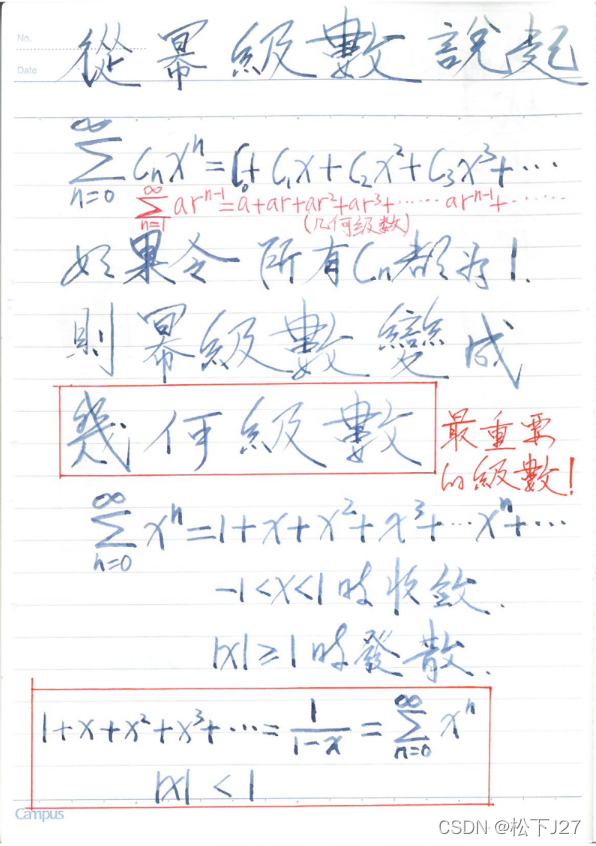 No.
Date
從冪級數說起
∞∑n=0 Cnxⁿ=C₀+C₁x+C₂x²+C₃x³+⋯
∞∑n=1 arⁿ⁻¹=a+ar+ar²+ar³+⋯⋯arⁿ⁻¹+⋯⋯
(几何級數)
如果令所有Cn都为1.
則冪級數變成
幾何級數
最重要
的級數!
∞∑n=0 xⁿ=1+x+x²+x³+⋯xⁿ+⋯
-1<x<1时收斂.
|x|≥1时發散.
1+x+x²+x³+⋯=1/(1-x)=∞∑n=0 xⁿ
|x|<1
Campus
CSDN @松下J27